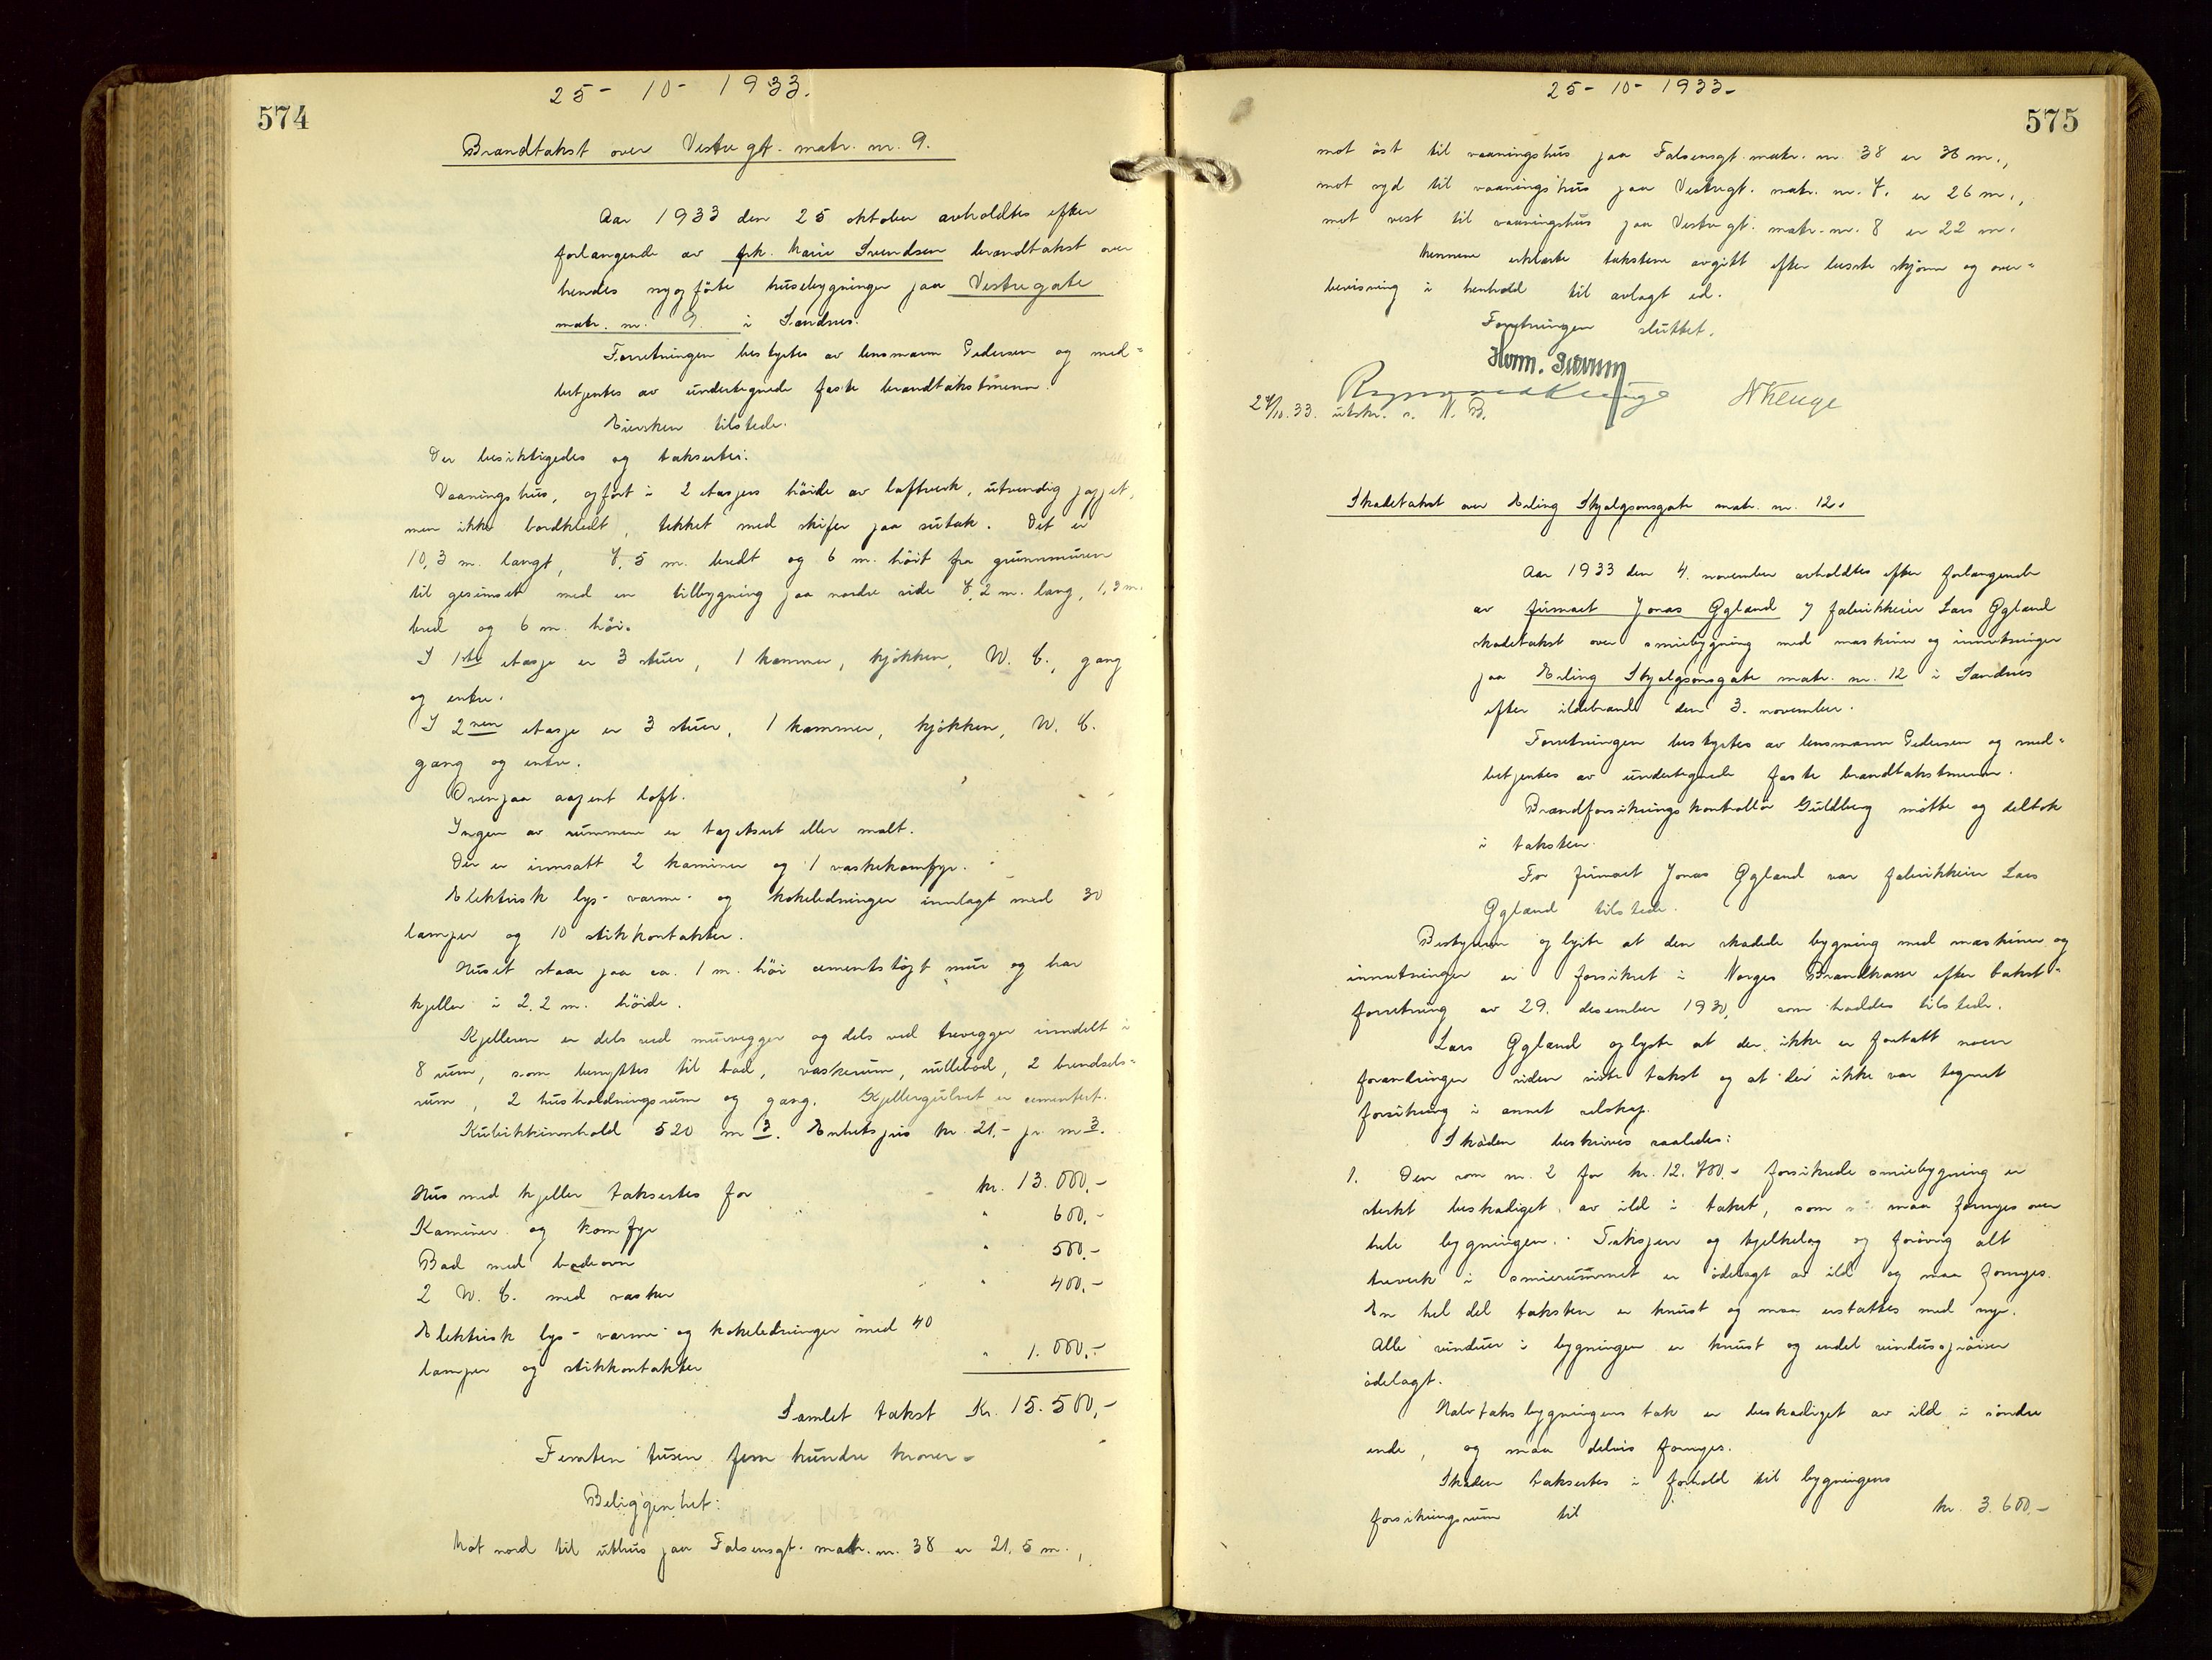 574
25 - 10 - 1933.
Brandtakst over Vestregt. matr. nr. 9.
Aar 1933 den 25 oktober avholdtes efter
forlangende av frk. Marie Svendsen brandtakst over
hendes nyopførte husebygninger paa Vestregate
matr. nr. 9. i Sandnes.
Forretningen bestyrtes av lensmann Pedersen og med-
betjentes av undertegnede faste brandtakstmenn.
Eiersken tilstede.
Der besiktigedes og taksertes:
Vaaningshus, opført i 2 etasjers höide av laftverk, utvendig pappet,
men ikke bordkledt, tekket med skifer paa sutak. Det er
10,3 m. langt, 7,5 m. bredt og 6 m. höit fra grunnmuren
til gesimset med en tilbygning paa nordre side 7,2 m. lang, 1,3 m.
bred og 6 m. höi.
I 1ste etasje er 3 stuer, 1 kammer, kjökken, W. C., gang
og entre.
I 2nen etasje er 3 stuer, 1 kammer, kjökken, W. C.
gang og entre.
Ovenpaa aapent loft.
Ingen av rummene er tapetsert eller malt.
Der er innsatt 2 kaminer og 1 vaskekomfyr.
Elektrisk lys- varme- og kokeledninger innlagt med 30
lamper og 10 stikkontakter.
Huset staar paa ca. 1 m. höi cementstöpt mur og har
kjeller i 2,2 m. höide.
Kjelleren er dels ved murvegger og dels ved trevegger inndelt i
8 rum, som benyttes til bad, vaskerum, rullebod, 2 brendsels-
rum, 2 husholdningsrum og gang. Kjellergulvet er cementert.
Kubikkinnhold 520 m3. Enhetspris kr. 21,- pr. m3.
Hus med kjeller taksertes for kr. 13.000,-
Kaminer og komfyr " 600,-
Bad med badeovn " 500,-
2 W. C. med vasker " 400,-
Elektrisk lys- varme- og kokeledninger med 40
lamper og stikkontakter " 1.000,-
Samlet takst Kr. 15.500,-
Femten tusen fem hundre kroner.
Beliggenhet:
Mot nord til uthus paa Falsensgt. matr. nr. 38 er 21,5 m.,
25 - 10 - 1933.
575
mot öst til vaaningshus paa Falsensgt. matr. nr. 38 er 36 m.,
mot syd til vaaningshus paa Vestregt. matr. nr. 7. er 26 m.,
mot vest til vaaningshus paa Vestregt. matr. nr. 8 er 22 m.
Mennene erklærte takstene avgitt efter beste skjönn og over-
bevisning i henhold til avlagt ed.
Forretningen sluttet.
27/10. 33. utskr. s. N. B.
Skadetakst over Erling Skjalgsonsgate matr. nr. 12.
Aar 1933 den 4. november avholdtes efter forlangende
av firmaet Jonas Øgland v/ fabrikkeier Lars Øgland
skadetakst over smiebygning med maskiner og innretninger
paa Erling Skjalgsonsgate matr. nr. 12 i Sandnes
efter ildebrand den 3. november.
Forretningen bestyrtes av lensmann Pedersen og med-
betjentes av undertegnede faste brandtakstmenn.
Brandforsikringskontrollör Guldberg mötte og deltok
i taksten.
For firmaet Jonas Øgland var fabrikkeier Lars
Øgland tilstede.
Bestyreren oplyste at den skadede bygning med maskiner og
innretninger er forsikret i Norges Brandkasse efter takst-
forretning av 29. desember 1930, som haddes tilstede.
Lars Øgland oplyste at der ikke er foretatt noen
forandringer siden siste takst og at der ikke var tegnet
forsikring i annet selskap.
Skaden beskrives saaledes:
1. Den som nr. 2 for kr. 12.700,- forsikrede smiebygning er
sterkt beskadiget av ild i taket, som maa fornyes over
hele bygningen. Taksperr og bjelkelag og forövrig alt
treverk i smierummet er ödelagt av ild og maa fornyes.
En hel del taksten er knust og maa erstattes med nye.
Alle vinduer i bygningen er knust og endel vindussprösser
ödelagt.
Halvtaksbygningens tak er beskadiget av ild i söndre
ende, og maa delvis fornyes.
Skaden taksertes i forhold til bygningens
forsikringssum til kr. 3.600,-